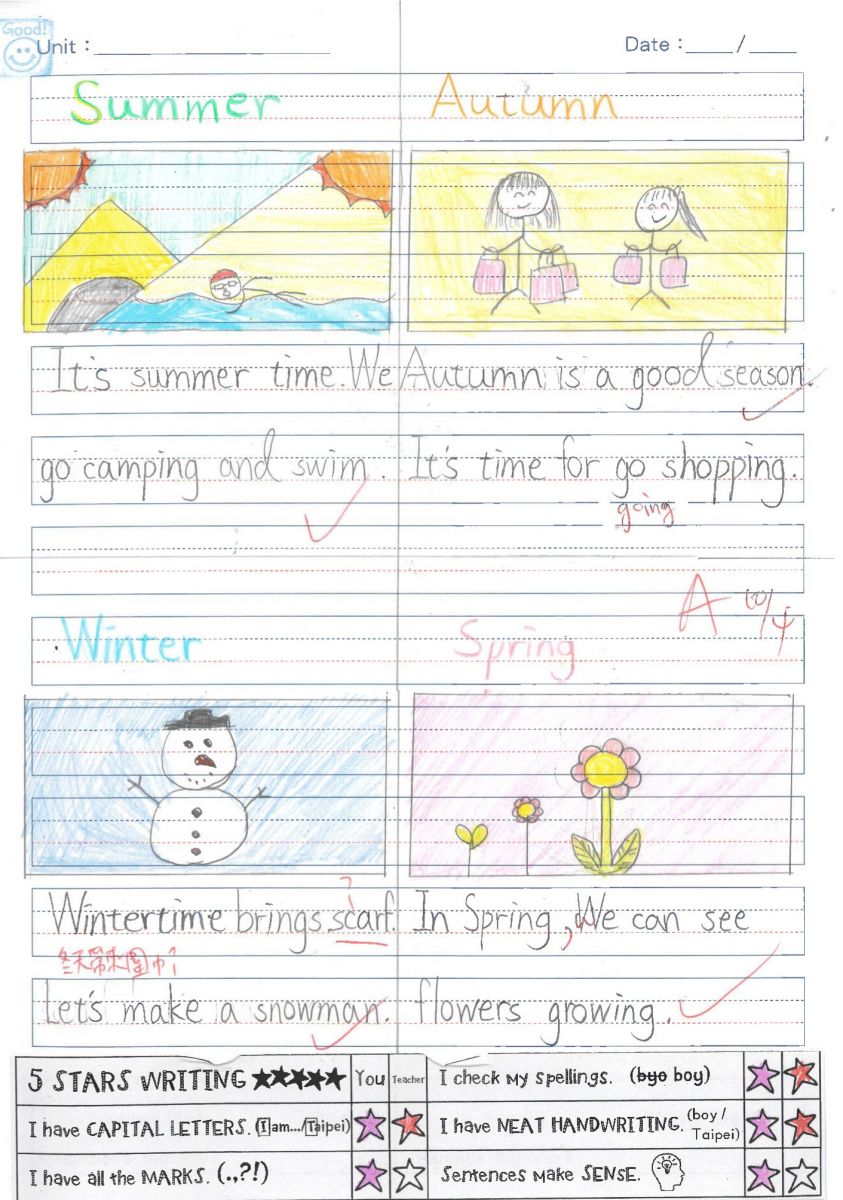 Good!
Unit : Date : /
Summer Autumn
It's summer time. We
go camping and swim.
Autumn is a good season.
It's time for go shopping.
going
A 10/4
Winter Spring
?
Wintertime brings scarf.
冬天帶來圍巾?
Let's make a snowman.
In Spring, We can see
flowers growing.
5 STARS WRITING ★★★★★ You Teacher
I check my spellings. (byo boy)
I have CAPITAL LETTERS. (I am.../Taipei)
I have NEAT HANDWRITING. (boy / Taipei)
I have all the MARKS. (.,?!)
Sentences make SENSE.